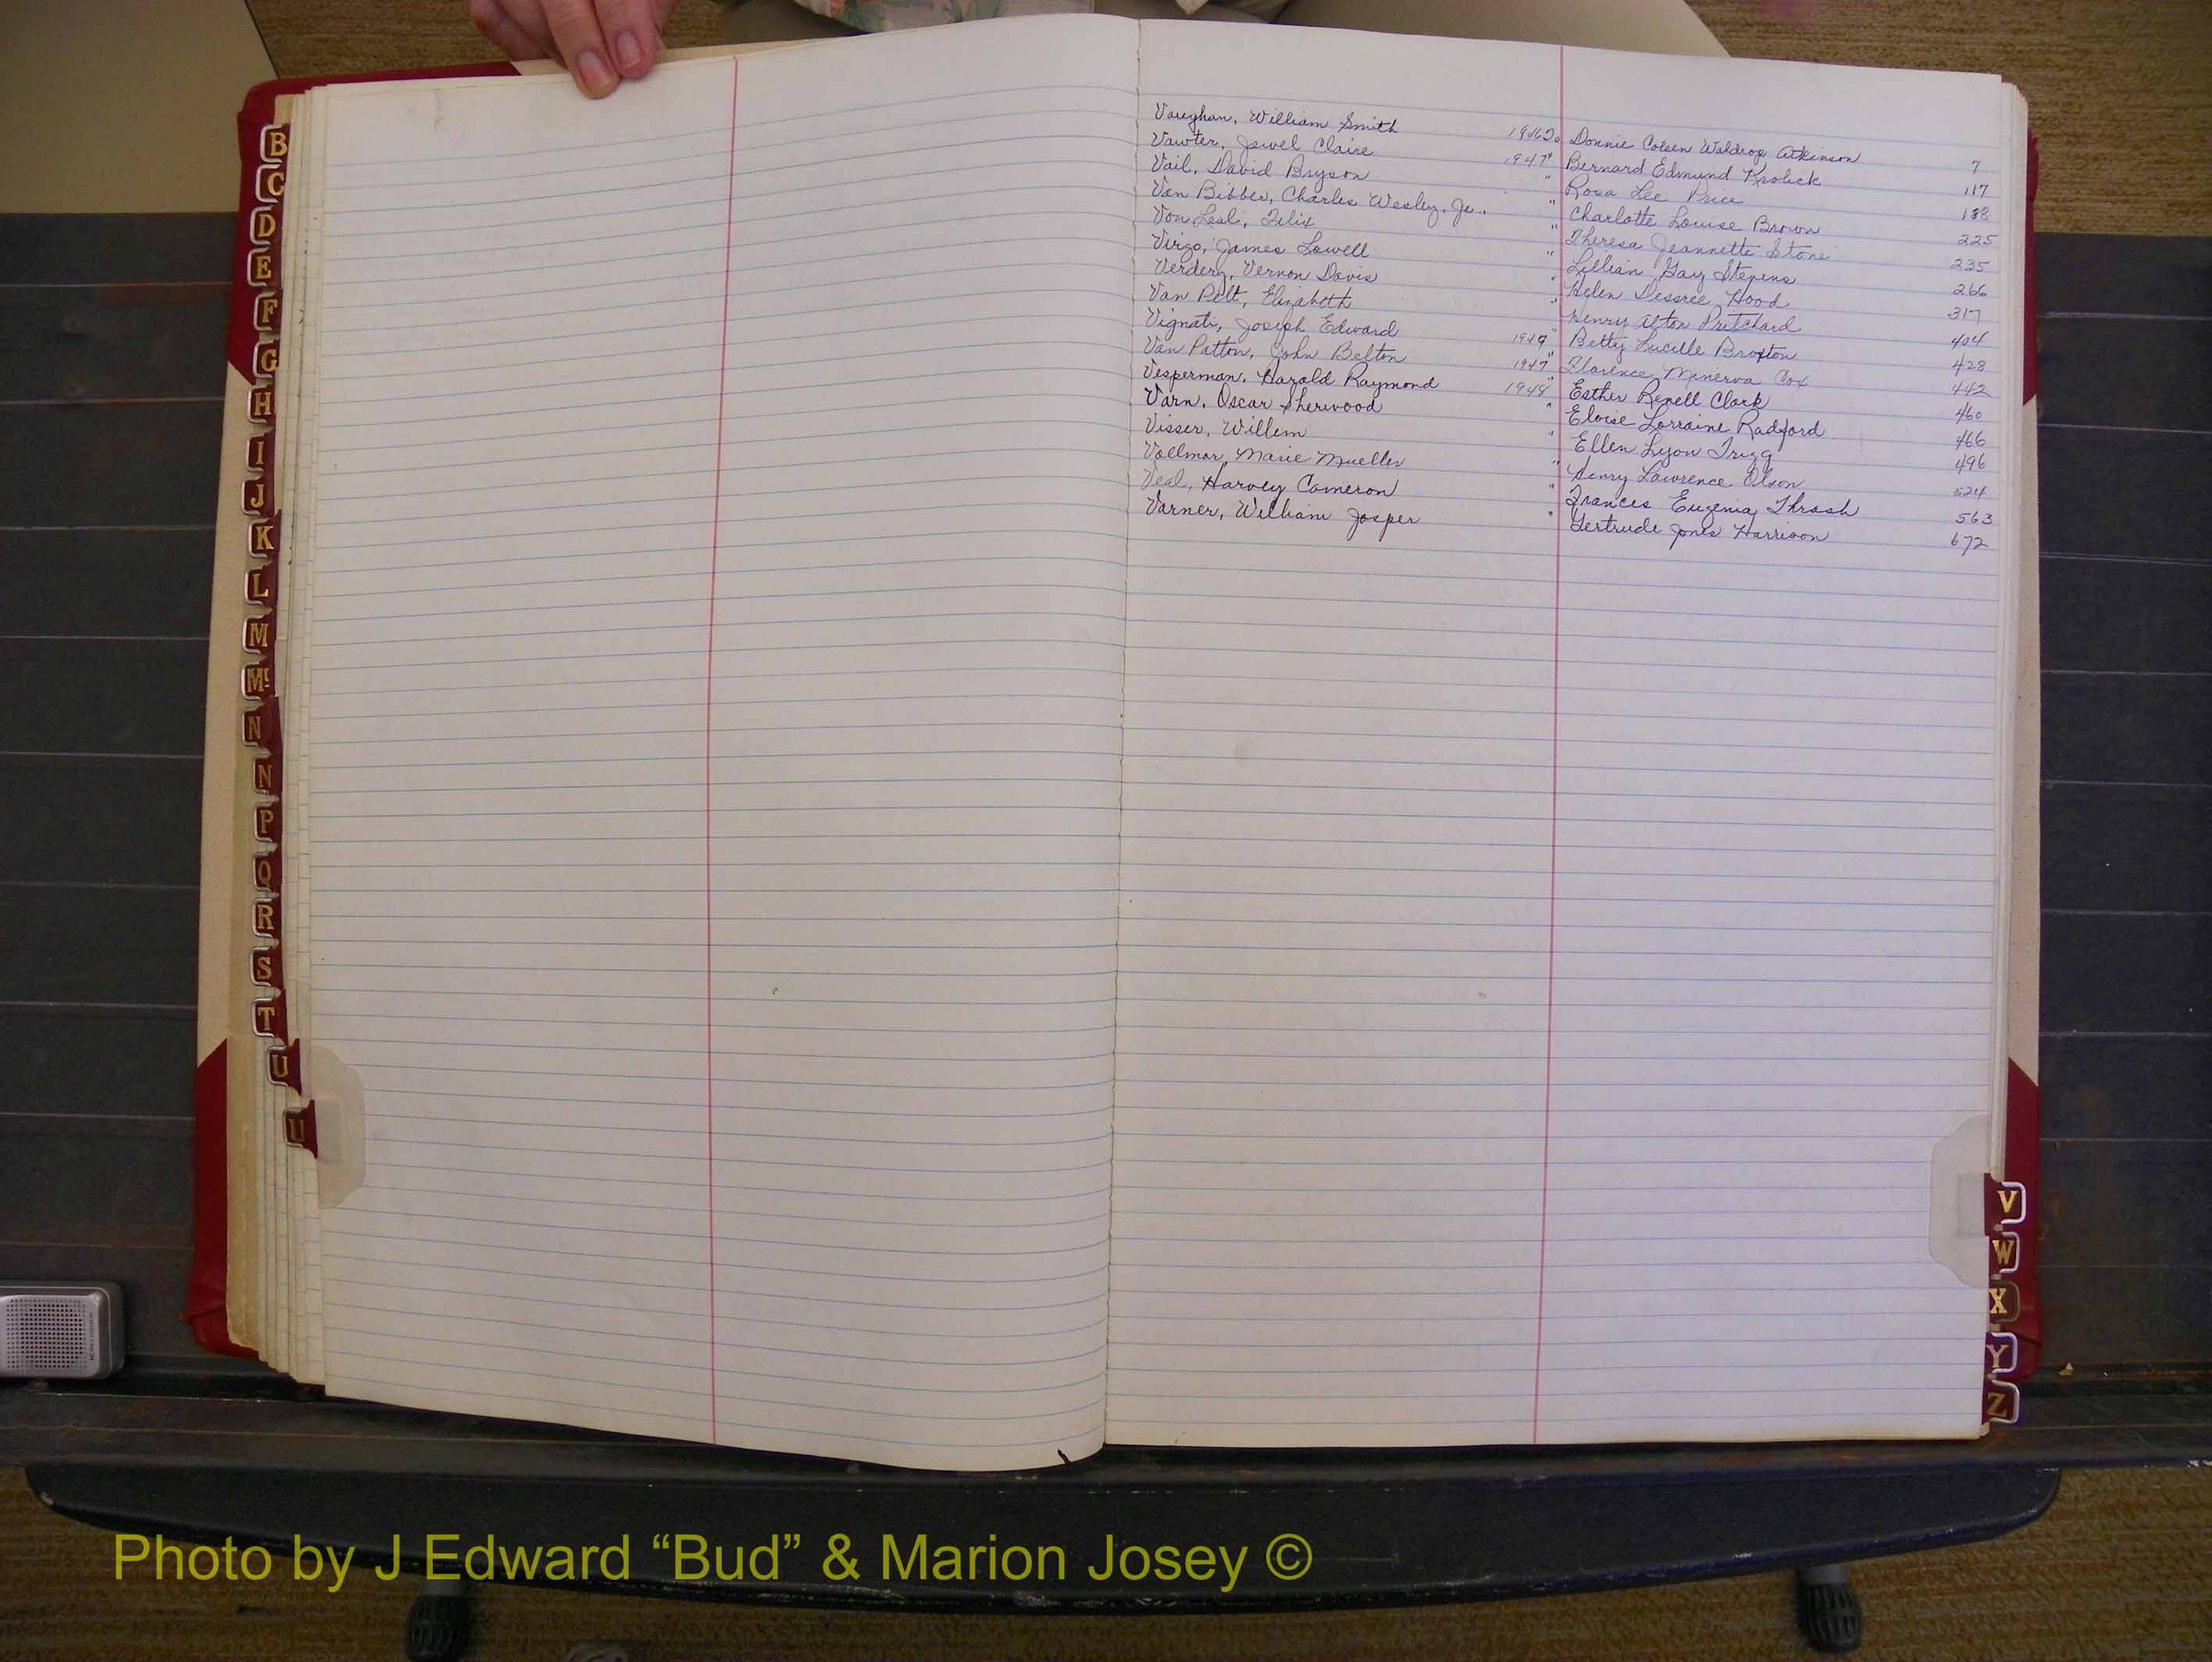 B
C
D
E
F
G
H
I
J
K
L
M
Mc
N
N
P
Q
R
S
T
U
U
Vaughan, William Smith 1946 Donnie Coleen Waldrop Atkinson 7
Vawter, Jewel Claire 1947 Bernard Edmund Krolick 117
Vail, David Bryson " Rosa Lee Price 188
Van Bibber, Charles Wesley, Jr. " Charlotte Louise Brown 225
Von Leal, Felix " Theresa Jeannette Stone 235
Virgo, James Lowell " Lillian Gay Stevens 266
Verdery, Vernon Davis " Helen Hood 317
Van Pelt, Elizabeth " Henry Alton Pritchard 404
Vignati, Joseph Edward " Betty Lucille Broxton 428
Van Patton, John Belton 1947 Florence Minerva Cox 442
Vesperman, Harold Raymond 1948 Esther Renell Clark 460
Varn, Oscar Sherwood " Eloise Lorraine Radford 466
Visser, Willem " Ellen Lyon Trigg 496
Vollmar, Marie Mueller " Henry Lawrence Olson 524
Veal, Harvey Cameron " Frances Eugenia Thrash 563
Varner, William Jasper " Gertrude Jones Harrison 672
V
W
X
Y
Z
Photo by J Edward “Bud” & Marion Josey ©